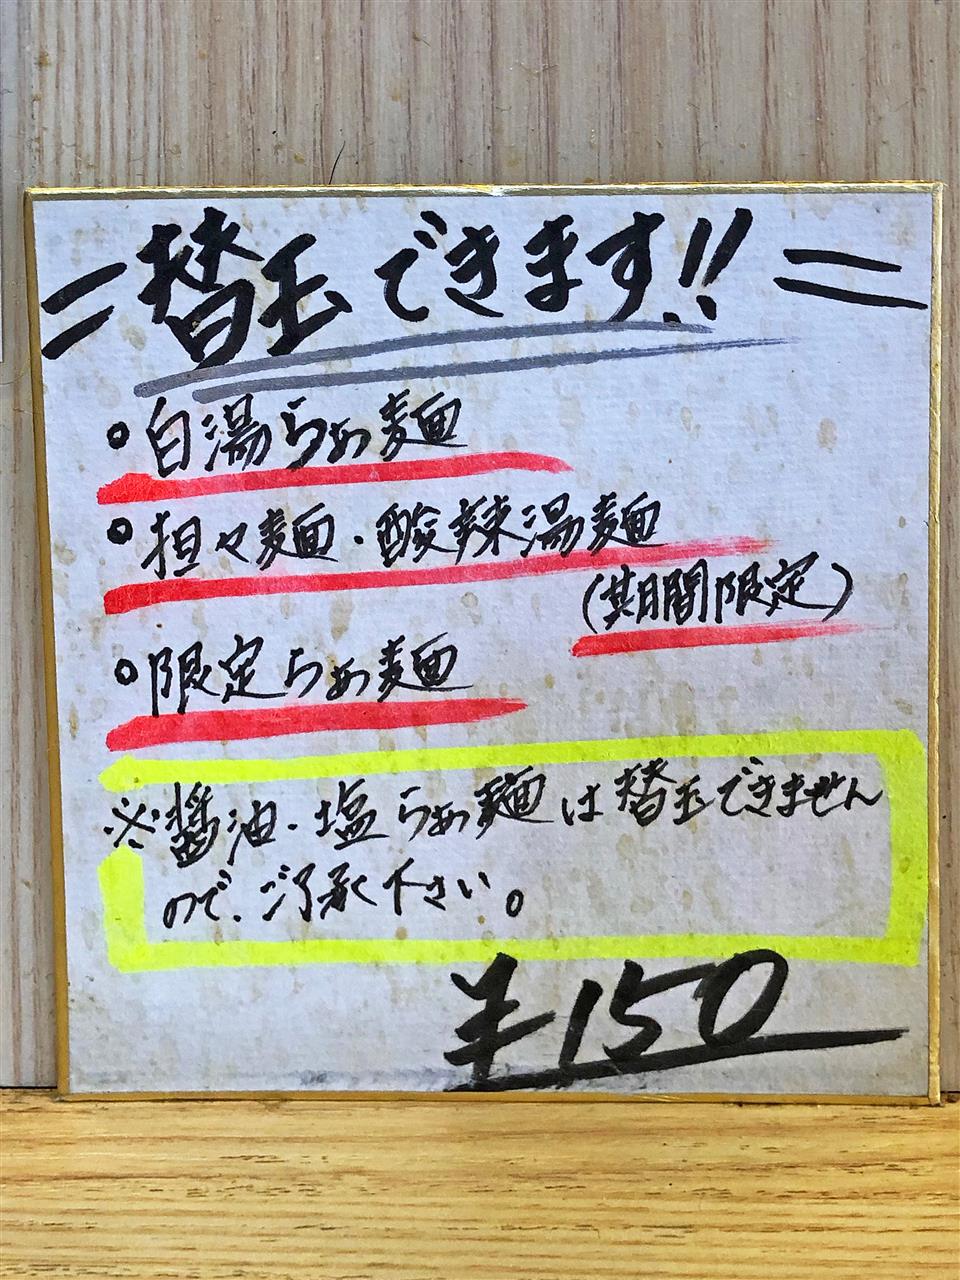 =替玉できます!!=
○白湯らぁ麺
○担々麺・酸辣湯麺
(期間限定)
○限定らぁ麺
※醤油・塩らぁ麺は替玉できません
ので、ご了承下さい。
¥150